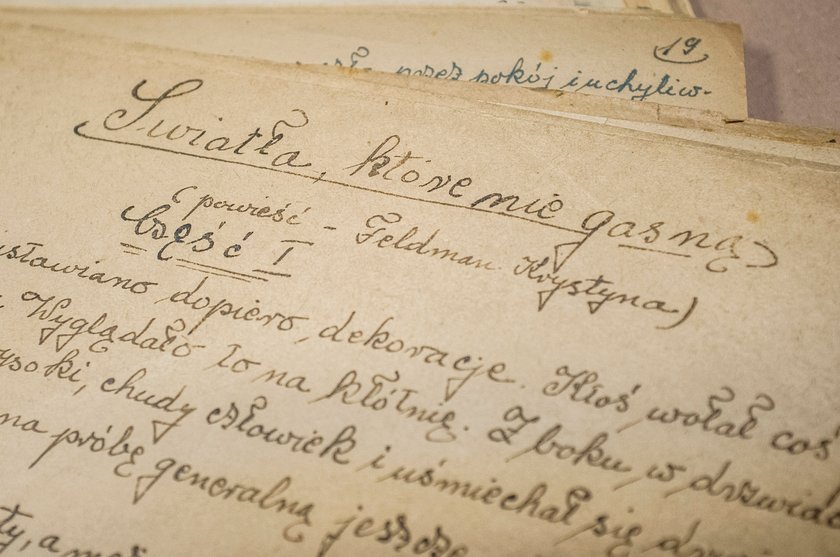 19
przez pokój i uchyliw-
Światła, które nie gasną
(powieść - Feldman Krystyna)
Część I
dopiero, dekoracje. Ktoś wołał coś
Wyglądało to na kłótnię. Z boku, w drzwiach
chudy człowiek i uśmiechał się
na próbę generalną jeszcze
a